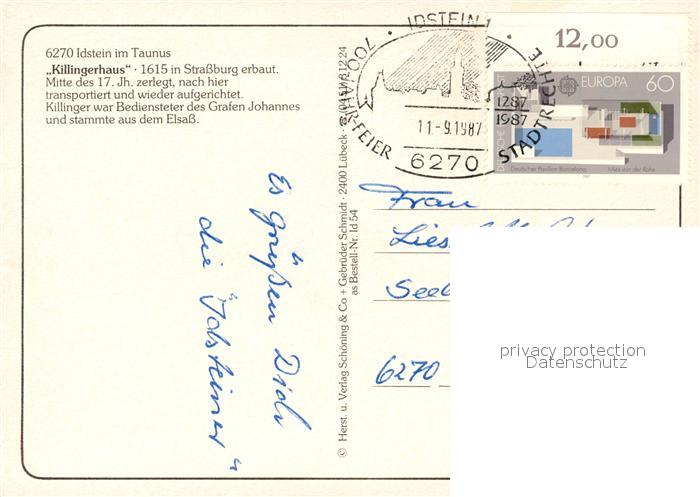 6270 Idstein im Taunus
„Killingerhaus" · 1615 in Straßburg erbaut.
Mitte des 17. Jh. zerlegt, nach hier
transportiert und wieder aufgerichtet.
Killinger war Bediensteter des Grafen Johannes
und stammte aus dem Elsaß.
Es grüßen Dich
die "Idsteiner"
© Herst. u. Verlag Schöning & Co + Gebrüder Schmidt · 2400 Lübeck
as Bestell-Nr. Id 54
· IDSTEIN 1 ·
700 JAHR-FEIER
STADTRECHTE
1287
1987
11-9.1987
6270
12,00
EUROPA 60
Deutscher Pavillon Barcelona
Mies van der Rohe
Frau
6270
privacy protection
Datenschutz